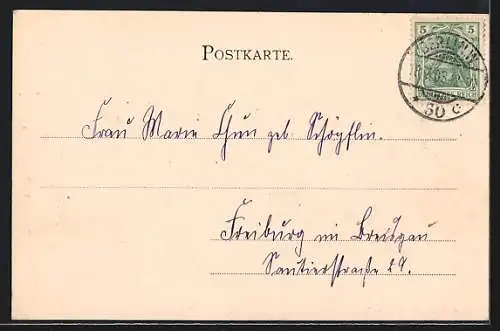 5 5
BERLIN W
POSTKARTE.
* 50 c
Frau Marie Thun geb Schöpflin.
Freiburg im Breisgau
Sautierstraße 29.